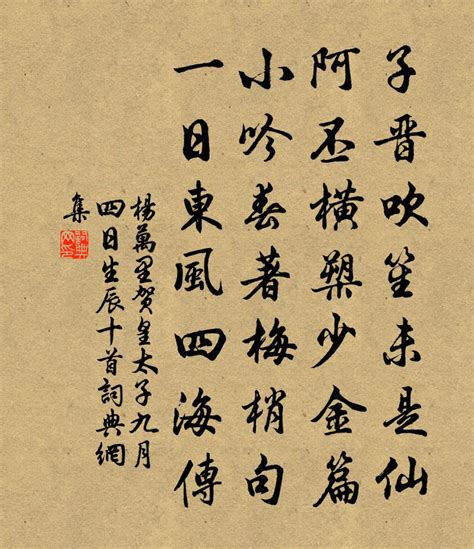 子晋吹笙未是仙
阿丕橫槊少金篇
小吟春著梅梢句
一日東風四海傳
楊萬里賀皇太子九月
四日生辰十首詞典網
集